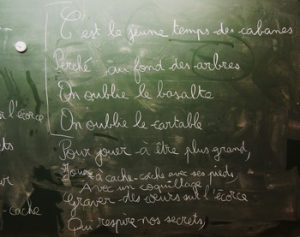 C'est le jeune temps des cabanes
Perché au fond des arbres
On oublie le basalte
On oublie le cartable
à l'écorce
Pour jouer à être plus grand,
Jouer à cache-cache avec ses pieds
Avec un coquillage
Graver des cœurs sur l'écorce
-cache
Qui respire nos secrets,